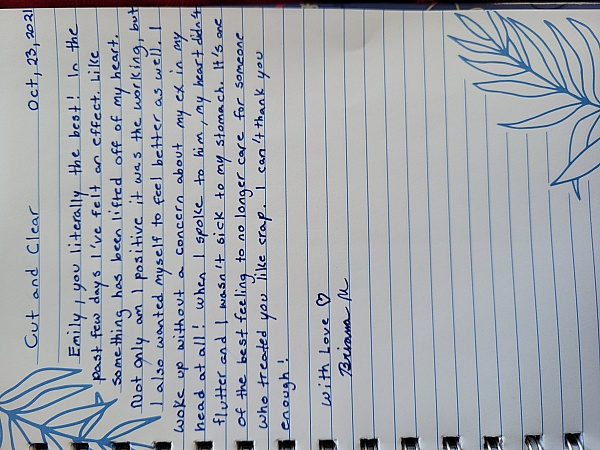 Cut and Clear Oct, 23, 2021
Emily, you literally the best! In the
past few days I've felt an effect. Like
something has been lifted off of my heart.
Not only am I positive it was the working, but
I also wanted myself to feel better as well. I
woke up without a concern about my ex in my
head at all! When I spoke to him, my heart didn't
flutter and I wasn't sick to my stomach. It's one
of the best feeling to no longer care for someone
who treated you like crap. I can't thank you
enough!
With Love ♡
Brianna M